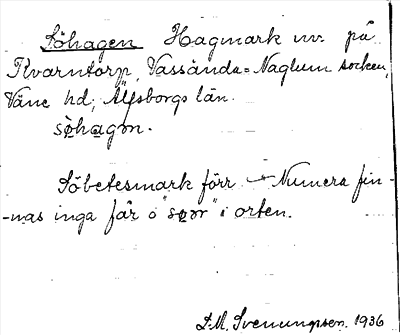 Söhagen Hagmark nv. på
Kvarntorp, Vassända=Naglum socken,
Väne hd; Älfsborgs län.
söhagən.
Söbetesmark förr – Numera fin-
-nas inga får o "söər" i orten.
D.M. Svenungsen. 1936